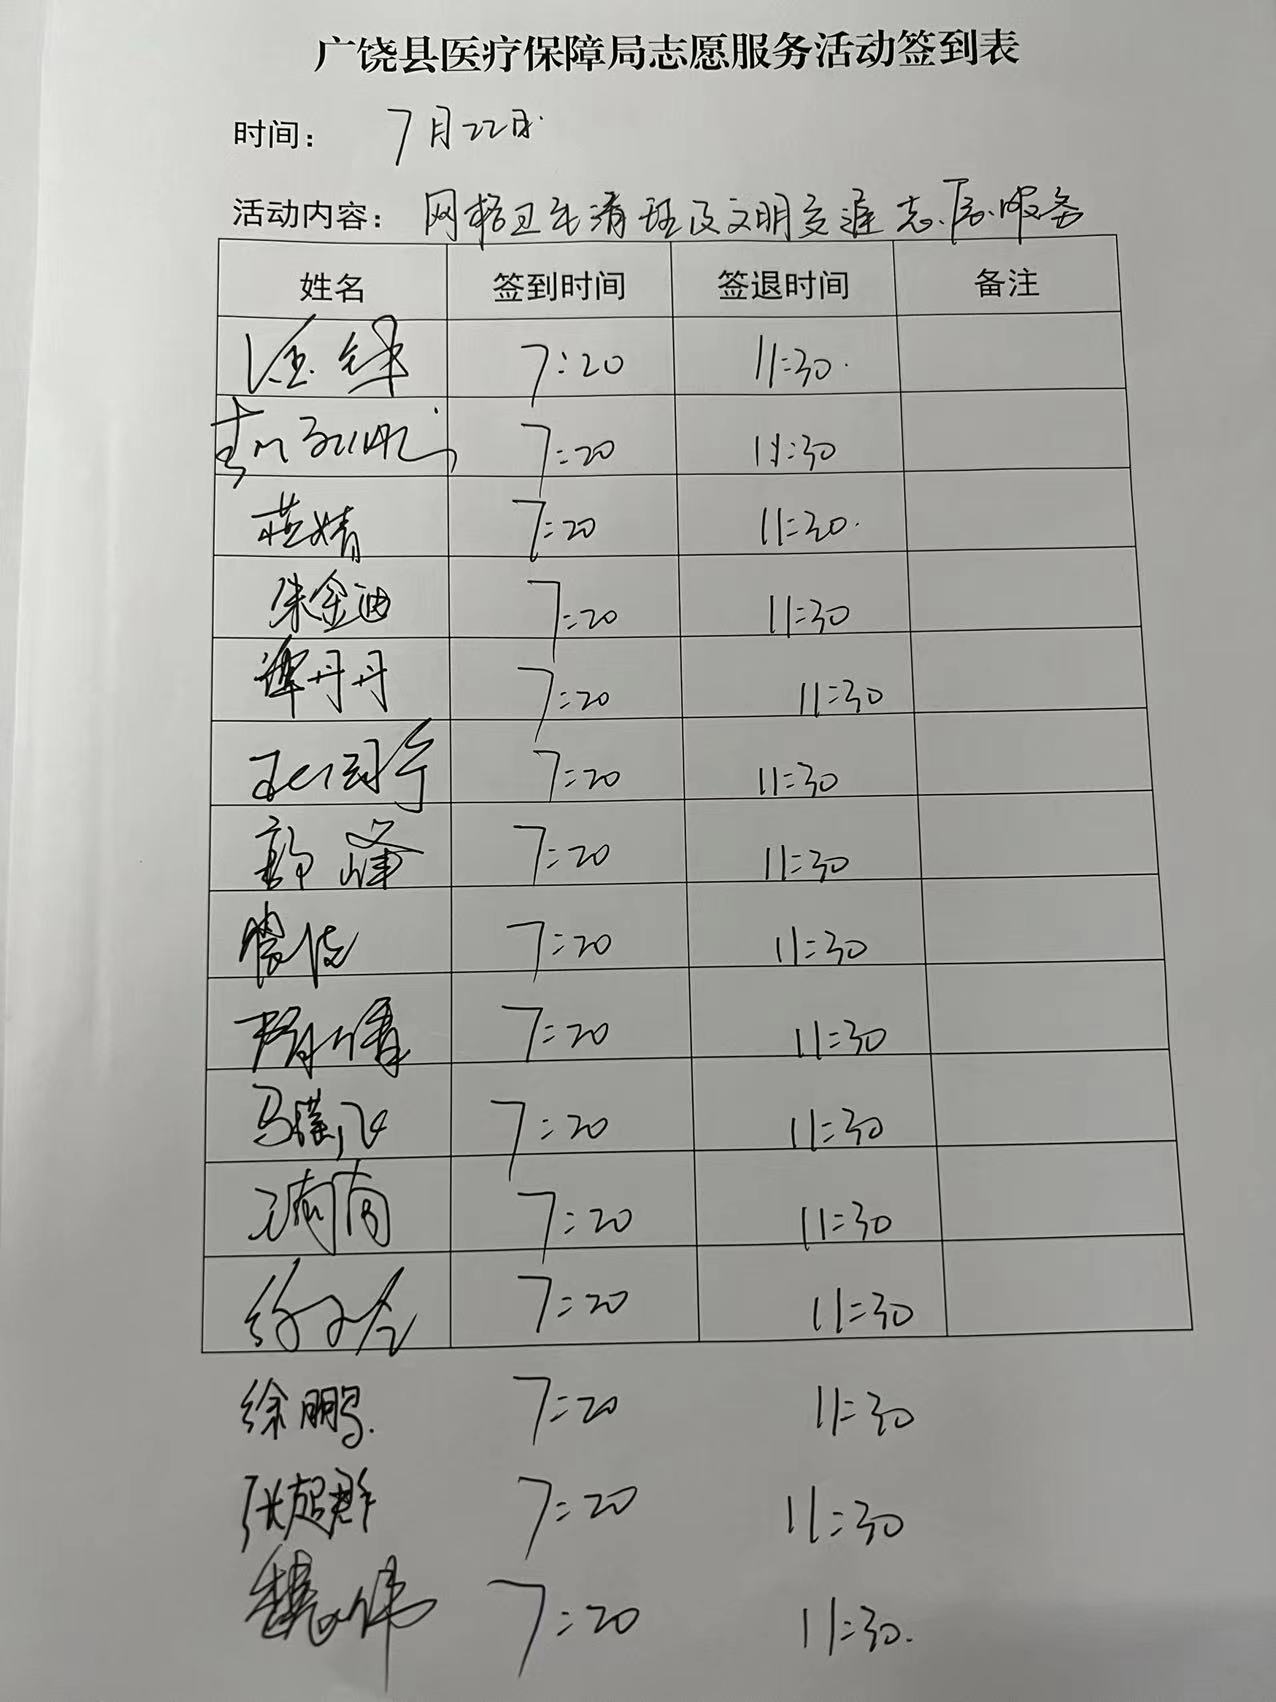 广饶县医疗保障局志愿服务活动签到表
时间： 7月22日
活动内容： 网格卫生清理及文明交通志愿服务
姓名 签到时间 签退时间 备注
7:20 11:30
7:20 11:30
燕婧 7:20 11:30
朱金迪 7:20 11:30
谭丹丹 7:20 11:30
7:20 11:30
郭峰 7:20 11:30
7:20 11:30
7:20 11:30
7:20 11:30
7:20 11:30
7:20 11:30
徐鹏 7:20 11:30
张超群 7:20 11:30
魏伟 7:20 11:30